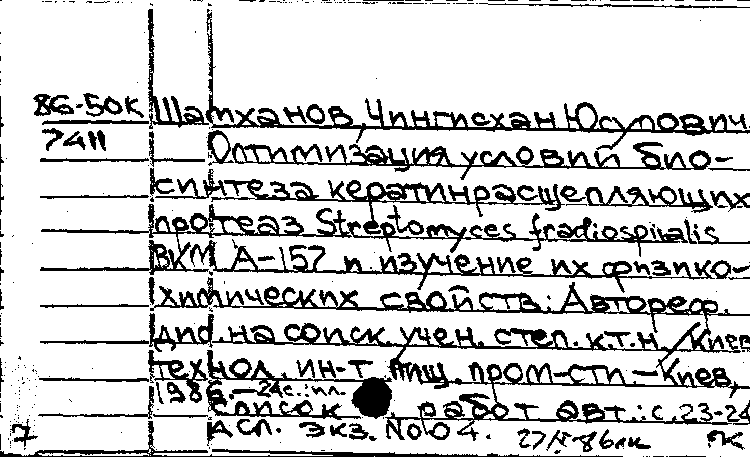 86-50К Шамханов, Чингисхан Юсупович.
7411 Оптимизация условий био-
синтеза кератинрасщепляющих
протеаз Streptomyces fradiospiralis
ВКМ А-157 и изучение их физико-
химических свойств: Автореф.
дис. на соиск. учен. степ. к.т.н. / Киев
технол. ин-т пищ. пром-сти. - Киев,
1986. - 24с.: ил.
Список работ авт.: с. 23-24
ДСП. Экз. № 04.